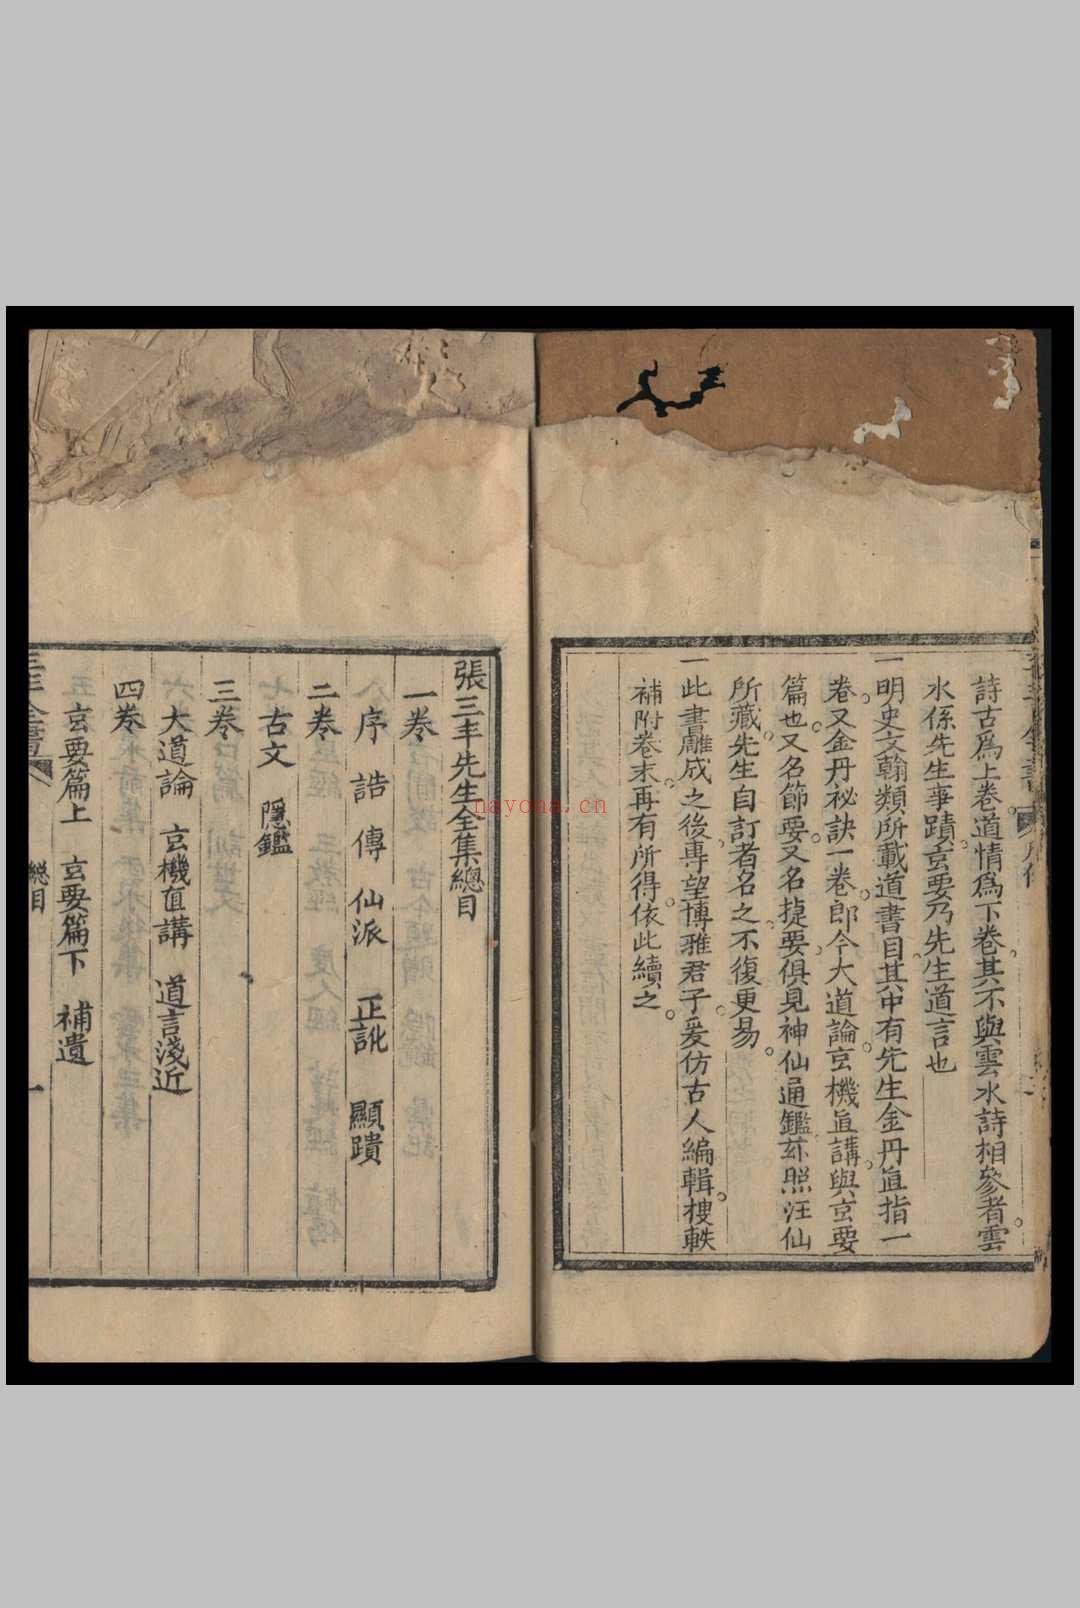 詩古爲上卷道情爲下卷其不與雲水詩相參者雲
水係先生事蹟玄要乃先生道言也
一明史文翰類所載道書目其中有先生金丹直指一
卷又金丹祕訣一卷郎今大道論玄機直講與玄要
篇也又名節要又名㨗要俱見神仙通鑑亦照汪仙
所藏先生自訂者名之不復更易
一此書雕成之後專望博雅君子爰仿古人編輯樓軼
補附卷末再有所得依此續之
張三丰先生全集總目
一卷
序 誥 傳 仙派 正訛 顯蹟
二卷
古文 隱鑑
三卷
大道論 玄機直講 道言淺近
四卷
玄要篇上 玄要篇下 補遺
三丰全書 總目 一
nayona.cn